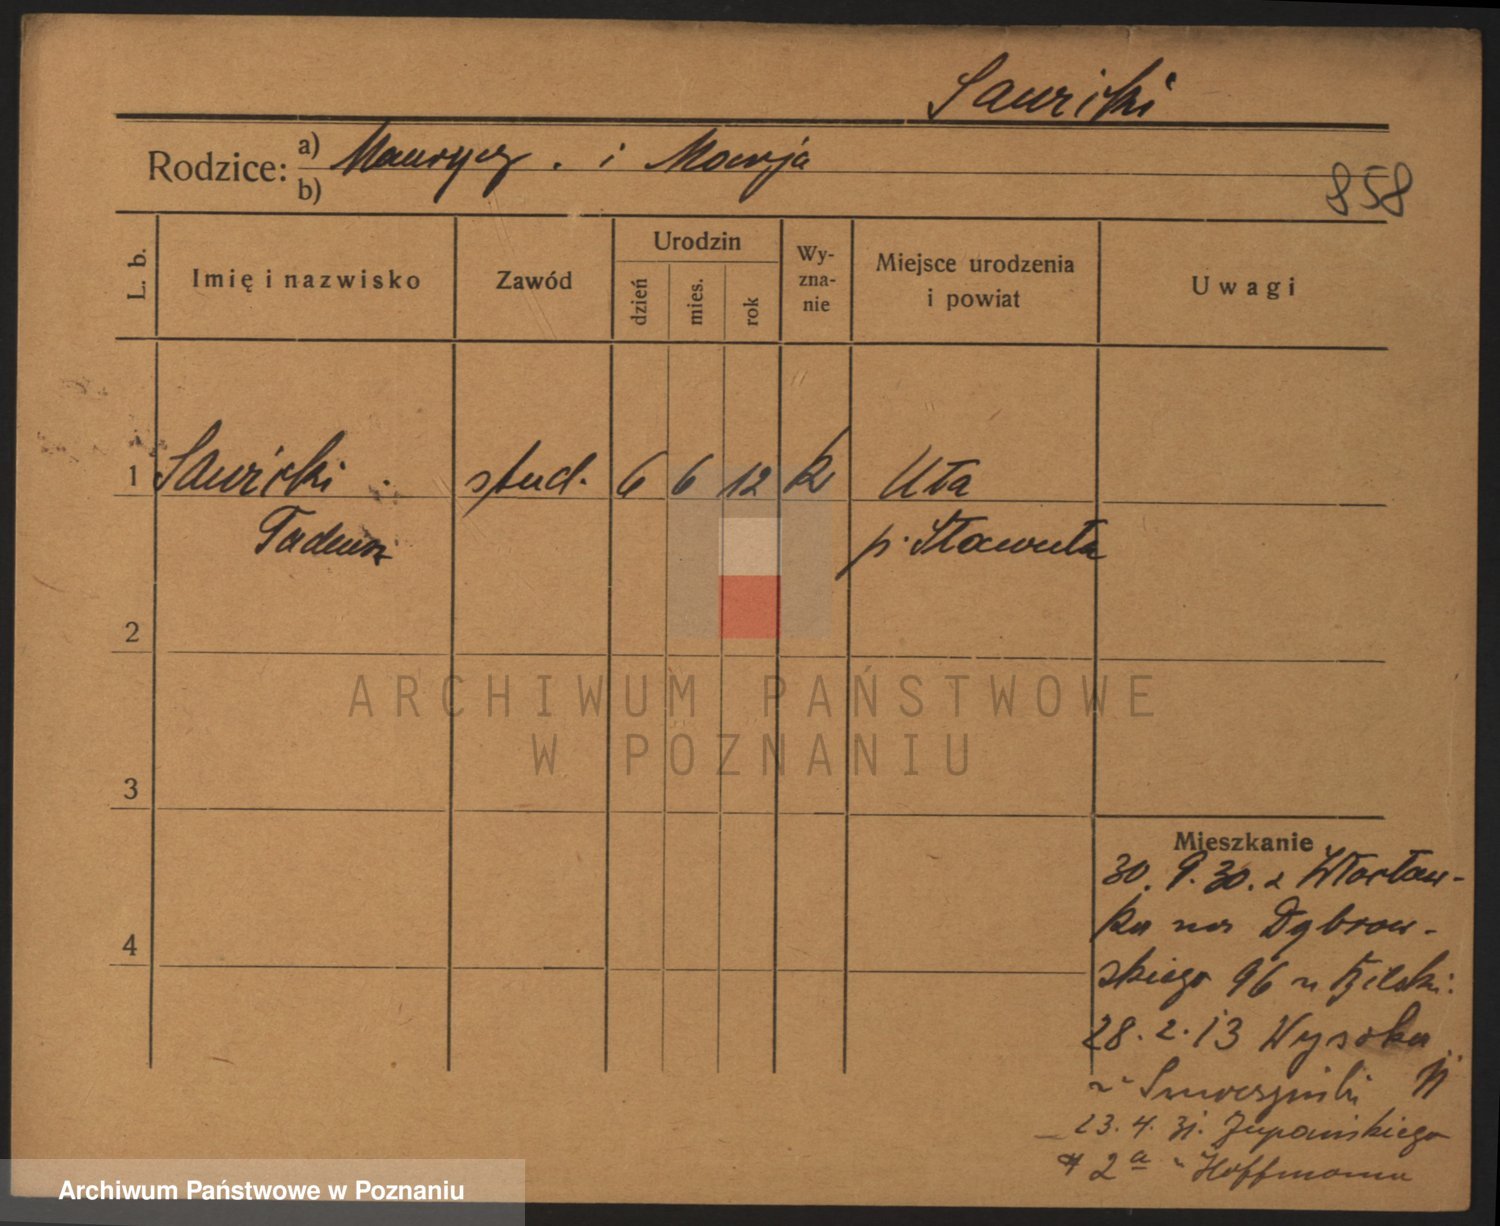 Sawicki
Rodzice: a) Maurycy . i Marja
b)
858
L. b.
Imię i nazwisko
Zawód
Urodzin
dzień
mies.
rok
Wy-
zna-
nie
Miejsce urodzenia
i powiat
Uwagi
1 Sawicki stud. 6 6 12 k Uła
Tadeusz p. Sławuta
2
ARCHIWUM PAŃSTWOWE
W POZNANIU
3
Mieszkanie
30. 9. 30. z Włocław-
ka na Dąbrow-
skiego 96 u
28. 2. Wysoka
u
23. 4. 31. Żupańskiego
2a u Hoffmanna
4
Archiwum Państwowe w Poznaniu